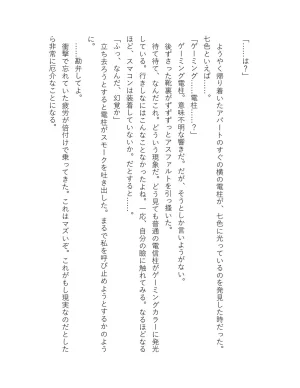 「……は？」
　ようやく帰り着いたアパートのすぐの横の電柱が、七色に光っているのを発見した時だった。
七色といえば……。
「ゲーミング　電柱……？」
　ゲーミング電柱。意味不明な響きだ。だが、そうとしか言いようがない。
　後ずさった靴裏がずずずっとアスファルトを引っ掻いた。
　待て待て、なんだこれ。どういう現象だ。どう見ても普通の電信柱がゲーミングカラーに発光
している。行きしなにはこんなことなかったよね。一応、自分の瞼に触れてみる。なるほどなる
ほど、スマコンは装着していないか。だとすると……。
「ふっ、なんだ、幻覚か」
　立ち去ろうとすると電柱がスモークを吐き出した。まるで私を呼び止めようとするかのよう
に。
　……勘弁してよ。
　衝撃で忘れていた疲労が倍付けで乗ってきた。これはマズいぞ。これがもし現実なのだとした
ら非常に厄介なことになる。